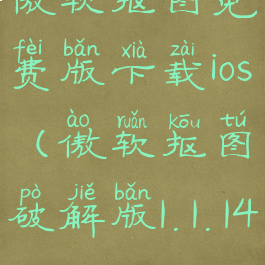 傲软抠图免
fèi bǎn xià zài
费版下载ios
ào ruǎn kōu tú
(傲软抠图
pò jiě bǎn
破解版1.1.14